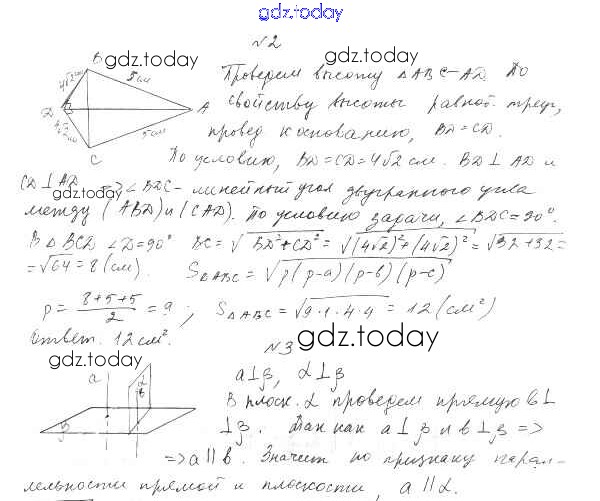 gdz.today
№2
gdz.today gdz.today
B
4√2 см
5 см
D
A
4√2 см
5 см
C
Проведем высоту △ABC – AD. По
свойству высоты равноб. треуг,
провед к основанию, BD = CD.
По условию, BD = CD = 4√2 см. BD ⊥ AD и
CD ⊥ AD => ∠BDC – линейный угол двугранного угла
gdz.today
между (ABD) и (CAD). По условию задачи, ∠BDC = 90°.
В △BCD ∠D = 90° BC = √BD²+CD² = √(4√2)²+(4√2)² = √32+32 =
= √64 = 8 (см). S△ABC = √p(p-a)(p-b)(p-c)
p = (8+5+5)/2 = 9 ; S△ABC = √9·1·4·4 = 12 (см²)
Ответ. 12 см².
gdz.today
№3
gdz.today
a
α
в
β
a⊥β, α⊥β
В плоск. α проведем прямую в⊥
⊥β. Так как a⊥β и в⊥β =>
=> a || в. Значит по признаку парал-
лельности прямой и плоскости, a || α.
gdz.today